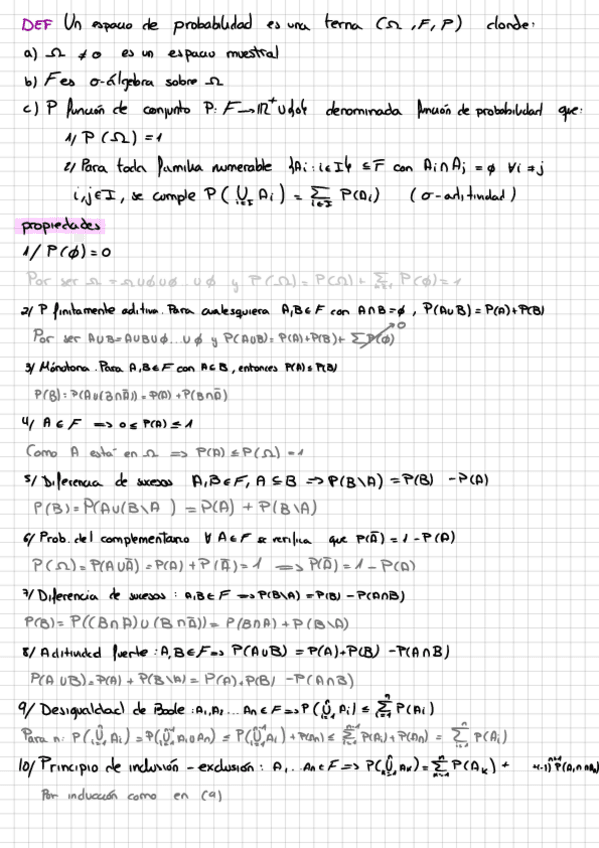 DEF Un espacio de probabilidad es una terna (Ω, F, P) donde:
a) Ω ≠ ∅ es un espacio muestral
b) F es σ-álgebra sobre Ω
c) P función de conjunto P: F → IR⁺ ∪ {0} denominada función de probabilidad que:
1/ P(Ω) = 1
2/ Para toda familia numerable {Ai : i ∈ I} ⊆ F con Ai ∩ Aj = ∅ ∀ i ≠ j
i, j ∈ I, se cumple P(∪i∈I Ai) = Σi∈I P(Ai) (σ-aditividad)
propiedades
1/ P(∅) = 0
Por ser Ω = Ω ∪ ∅ ∪ ∅ .. ∪ ∅ y P(Ω) = P(Ω) + Σ P(∅) = 1
2/ P finitamente aditiva. Para cualesquiera A, B ∈ F con A ∩ B = ∅, P(A ∪ B) = P(A) + P(B)
Por ser A ∪ B = A ∪ B ∪ ∅ ... ∪ ∅ y P(A ∪ B) = P(A) + P(B) + Σ P(∅) 0
3/ Mónotona. Para A, B ∈ F con A ⊆ B, entonces P(A) ≤ P(B)
P(B) = P(A ∪ (B ∩ Ā)) = P(A) + P(B ∩ Ā)
4/ A ∈ F ⟹ 0 ≤ P(A) ≤ 1
Como A está en Ω ⟹ P(A) ≤ P(Ω) = 1
5/ Diferencia de sucesos A, B ∈ F, A ⊆ B ⟹ P(B\A) = P(B) - P(A)
P(B) = P(A ∪ (B\A)) = P(A) + P(B\A)
6/ Prob. del complementario ∀ A ∈ F se verifica que P(Ā) = 1 - P(A)
P(Ω) = P(A ∪ Ā) = P(A) + P(Ā) = 1 ⟹ P(Ā) = 1 - P(A)
7/ Diferencia de sucesos : A, B ∈ F ⟹ P(B\A) = P(B) - P(A ∩ B)
P(B) = P((B ∩ A) ∪ (B ∩ Ā)) = P(B ∩ A) + P(B\A)
8/ Aditividad fuerte : A, B ∈ F ⟹ P(A ∪ B) = P(A) + P(B) - P(A ∩ B)
P(A ∪ B) = P(A) + P(B\A) = P(A) + P(B) - P(A ∩ B)
9/ Desigualdad de Boole : A1, A2 ... An ∈ F ⟹ P(∪ⁿi=1 Ai) ≤ Σⁿi=1 P(Ai)
Para n: P(∪ⁿi=1 Ai) = P(∪ⁿ⁻¹i=1 Ai ∪ An) ≤ P(∪ⁿ⁻¹i=1 Ai) + P(An) ≤ Σⁿ⁻¹i=1 P(Ai) + P(An) = Σⁿi=1 P(Ai)
10/ Principio de inclusión - exclusión : A1 .. An ∈ F ⟹ P(∪ⁿk=1 Ak) = Σⁿk=1 P(Ak) +
Por inducción como en (9)